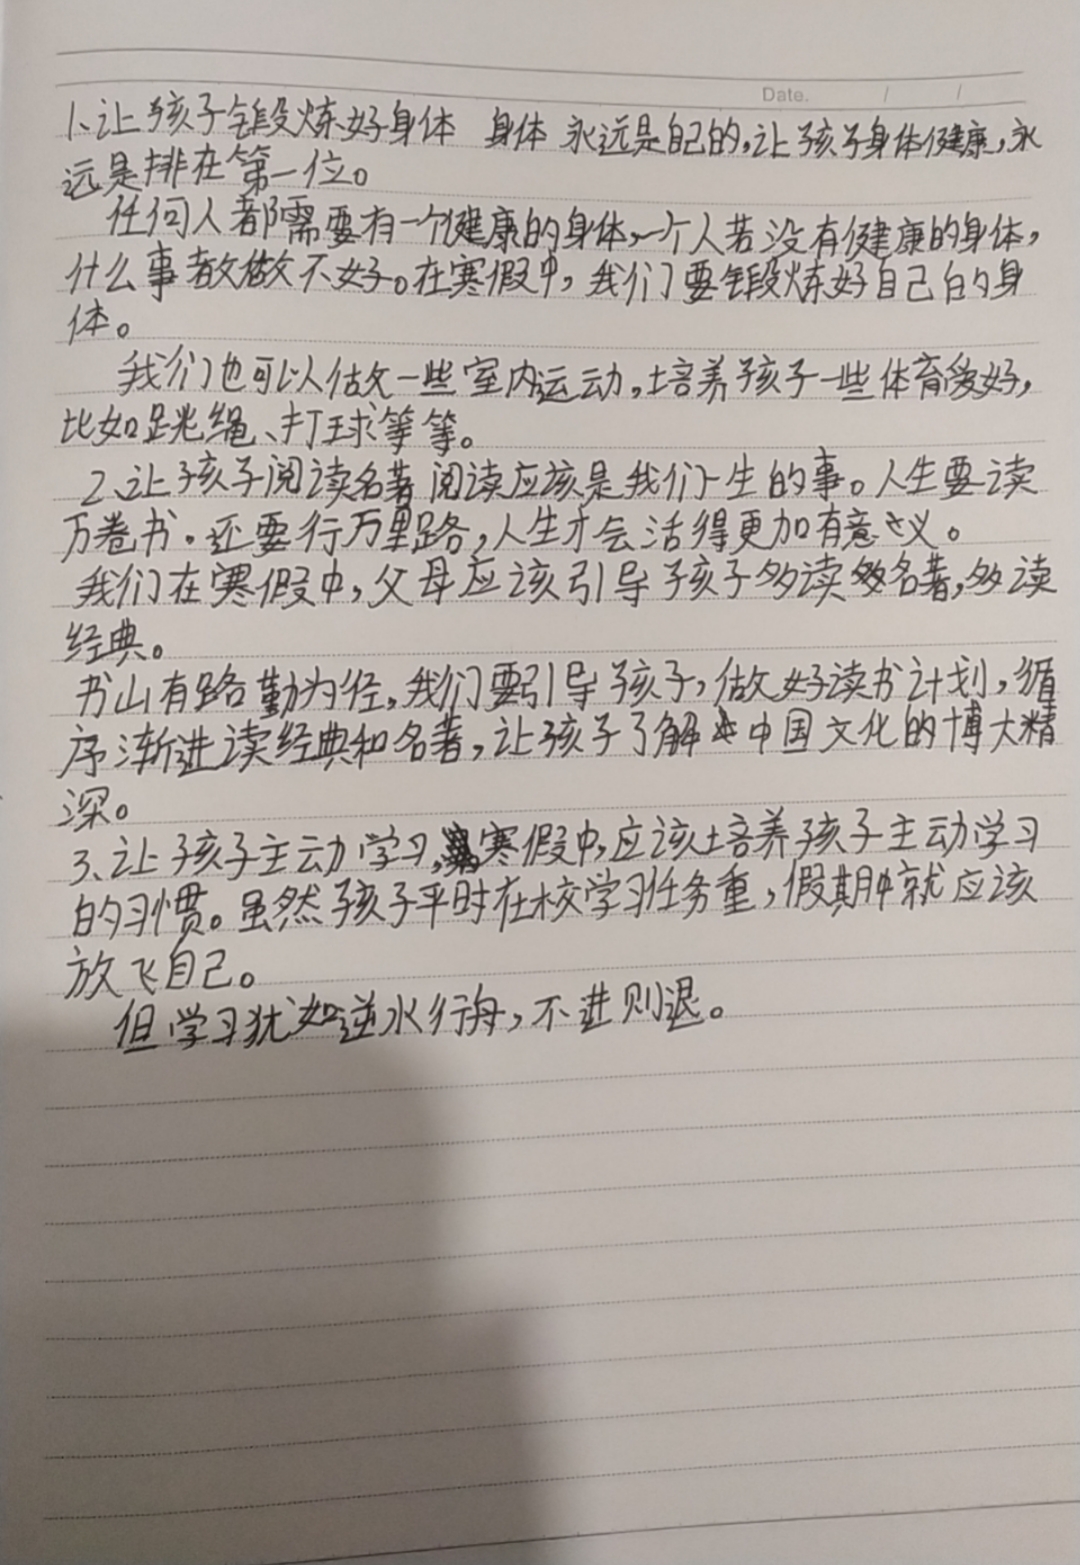 Date. / /
1、让孩子锻炼好身体 身体 永远是自己的,让孩子身体健康,永
远是排在第一位。
任何人都需要有一个健康的身体,一个人若没有健康的身体,
什么事都做不好。在寒假中,我们要锻炼好自己的身
体。
我们也可以做一些室内运动,培养孩子一些体育爱好,
比如跳绳、打球等等。
2、让孩子阅读名著 阅读应该是我们一生的事。人生要读
万卷书。还要行万里路,人生才会活得更加有意义。
我们在寒假中,父母应该引导孩子多读名著,多读
经典。
书山有路勤为径,我们要引导孩子,做好读书计划,循
序渐进读经典和名著,让孩子了解中国文化的博大精
深。
3、让孩子主动学习,寒假中,应该培养孩子主动学习
的习惯。虽然孩子平时在校学习任务重,假期中就应该
放飞自己。
但学习犹如逆水行舟,不进则退。